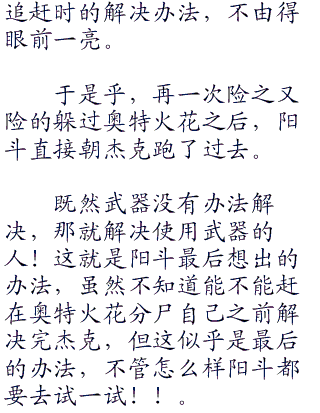 追赶时的解决办法，不由得
眼前一亮。
于是乎，再一次险之又
险的躲过奥特火花之后，阳
斗直接朝杰克跑了过去。
既然武器没有办法解
决，那就解决使用武器的
人！这就是阳斗最后想出的
办法，虽然不知道能不能赶
在奥特火花分尸自己之前解
决完杰克，但这似乎是最后
的办法，不管怎么样阳斗都
要去试一试！！。